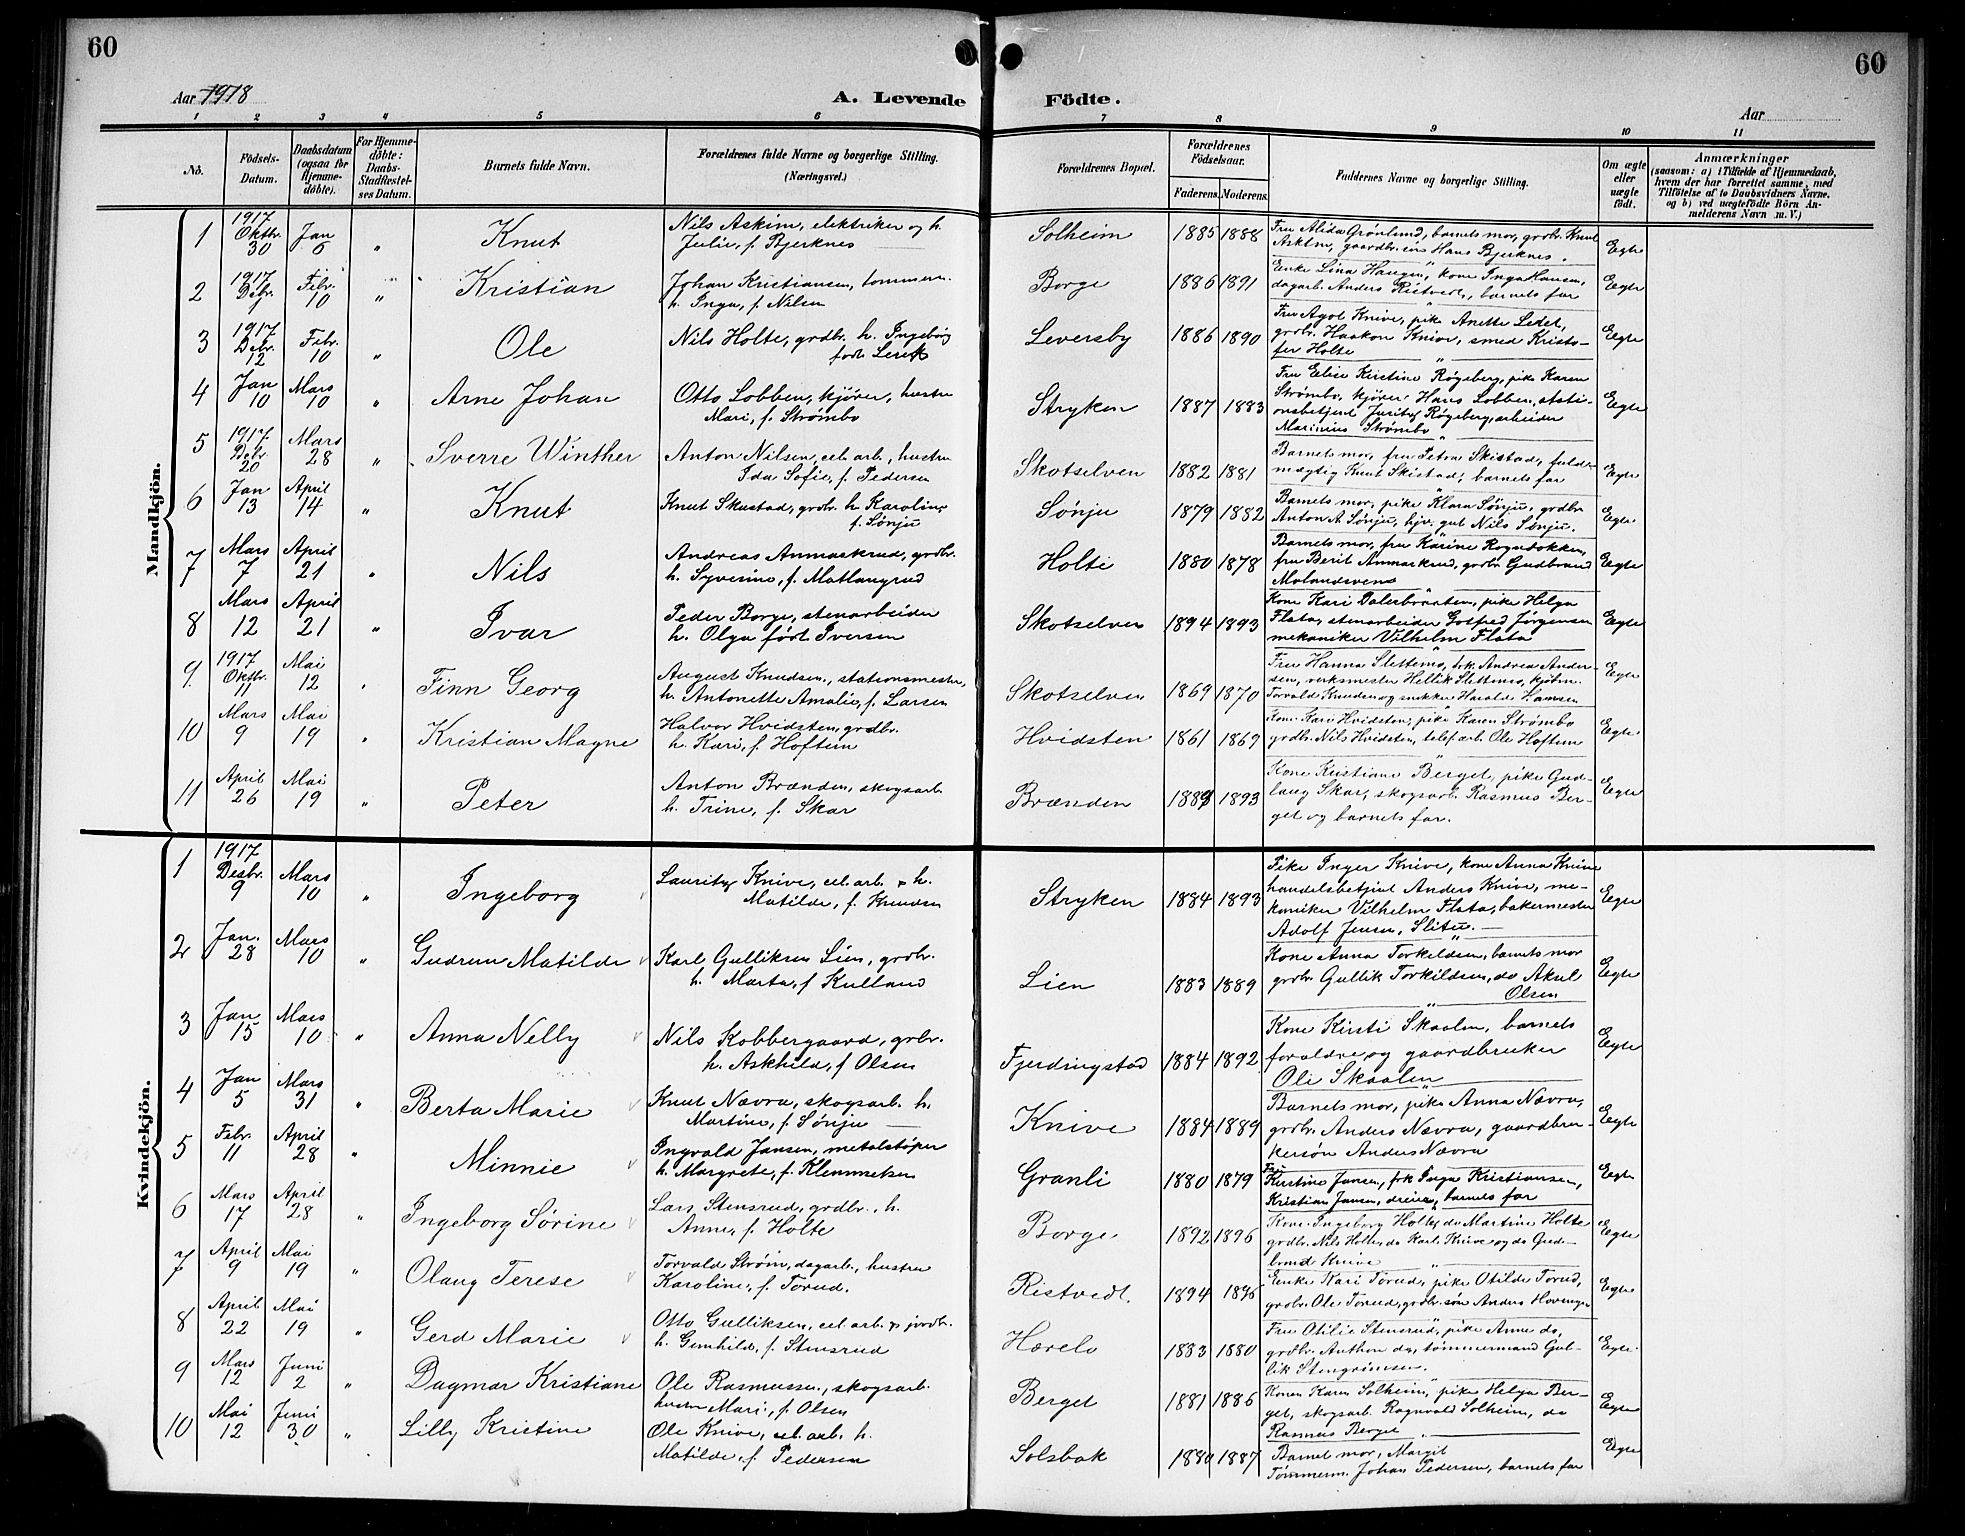 60
60
Aar 1918
A. Levende
Födte.
Aar
1 2 3 4 5 6 7 8 9 10 11
No.
Födsels-Datum.
Daabsdatum (ogsaa for Hjemme-döbte).
For Hjemme-döbte: Daabs-Stadfæstelses Datum.
Barnets fulde Navn.
Forældrenes fulde Navne og borgerlige Stilling.
(Næringsvei.)
Forældrenes Bopæl.
Forældrenes Födselsaar.
Faderens. Moderens.
Faddernes Navne og borgerlige Stilling.
Om ægte eller uægte födt.
Anmærkninger
(saasom: a) i Tilfælde af Hjemmedaab,
hvem der har forrettet samme, med
Tilföielse af to Daabsvidners Navne,
og b) ved uægtefödte Börn An-
melderens Navn m. V.)
Mandkjön.
1 1917 Oktbr. 30 Jan 6 " Knut
Nils Askim, elektriker og h.
Julie, f. Bjerknes
Solheim 1885 1888
Fru Alida Grønlund, barnets mor, grdbr. Knut
Askim, gaardbr. Hans Bjerknes.
Egte
2 1917 Debr. 9 Febr. 10 " Kristian
Johan Kristiansen, tømmerm.
h. Inga, f. Nilsen
Borge 1886 1891
Enke Lina Haugen, kone Inga Hansen,
dagarb. Anders Ristvedt, barnets far
Egte
3 1917 Debr. 12 Febr. 10 " Ole
Nils Holte, grdbr. h. Ingebørg
født
Leversby 1886 1890
Fru Agot Knive, pike Anette
grdbr. Haakon Knive, smed Kristo-
fer Holte
Egte
4 Jan 10 Mars 10 " Arne Johan
Otto Lobben, kjører, hustru
Mari, f. Strømbo
Stryken 1887 1883
Fru Elise Kirstine Røgeberg, pike Karen
Strømbo, kjører Hans Lobben, stati-
onsbetjent Røgeberg, arbeider
Marinius Strømbo
Egte
5 1917 Debr. 20 Mars 28 " Sverre Winther
Anton Nilsen, cel. arb., hustru
Ida Sofie, f. Pedersen
Skotselven 1882 1881
Barnets mor, fru Petra Skistad, fuld-
mægtig Knut Skistad, barnets far
Egte
6 Jan 13 April 14 " Knut
Knut Skustad, grdbr. h. Karoline
f. Sønju
Sønju 1879 1882
Barnets mor, pike Klara Sønju, grdbr.
Anton A Sønju, hjv. gut Nils Sønju.
Egte
7 Mars 7 April 21 " Nils
Andreas Anmarkrud, grdbr.
h. Syverine, f. Matlangrud
Holte 1880 1878
Barnets mor, fru Karine Rognebakken,
fru Berit Anmarkrud, grdbr. Gudbrand
Molandsveen
Egte
8 Mars 12 April 21 " Ivar
Peder Borge, stenarbeider
h. Olga født Iversen
Skotselven 1894 1893
Kone Kari Dalerbraaten, pike Helga
Flata, stenarbeider Gotfred Jørgensen
mekaniker Vilhelm Flata
Egte
9 1917 Oktbr. 11 Mai 12 " Finn Georg
August Knudsen, stationsmester,
h. Antonette Amalie, f. Larsen
Skotselven 1869 1870
Fru Hanna Slettemo, frk. Andrea Ander-
sen, verksmester Hellik Slettemo, kjøbm.
Torvald Knudsen og snekker Harald Hansen
Egte
10 Mars 9 Mai 19 " Kristian Magne
Halvor Hvidsten, grdbr.
h. Kari, f. Hoftun
Hvidsten 1861 1869
Kone Kari Hvidsten, pike Karen Strømbo
grdbr. Nils Hvidsten, telef. arb. Ole Hoftun
Egte
11 April 26 Mai 19 " Peter
Anton Brænden, skogsarb.
h. Trine, f. Skar
Brænden 1889 1893
Kone Kristiane Berget, pike Gud-
laug Skar, skogsarb. Rasmus Ber-
get og barnets far.
Egte
Kvindekjön.
1 1917 Desbr. 9 Mars 10 " Ingeborg
Lauritz Knive, cel. arb. & h.
Matilde, f. Knudsen
Stryken 1884 1893
Pike Inger Knive, kone Anna Knive
handelsbetjent Anders Knive, me-
kaniker Vilhelm Flata, bakermester
Adolf Jensen,
Egte
2 Jan. 28 Mars 10 " Gudrun Matilde
Karl Gulliksen Lien, grdbr.
h. Marta, f. Kulland
Lien 1883 1889
Kone Anna Torkildsen, barnets mor
grdbr. Gullik Torkildsen, do Aksel
Olsen
Egte
3 Jan 15 Mars 10 " Anna Nelly
Nils Kobbergaard, grbr.
h. Askhild, f. Olsen
Fjerdingstad 1884 1892
Kone Kirsti Skaalen, barnets
foraldre og gaardbruker
Ole Skaalen
Egte
4 Jan 5 Mars 31 " Berta Marie
Knut Nævra, skogsarb. h.
Martine, f. Sønju
Knive 1884 1889
Barnets mor, pike Anna Nævra,
grdbr. Anders Nævra, gaardbru-
kersøn Anders Nævra
Egte
5 Febr. 11 April 28 " Minnie
Ingvald Jansen, metalstøper
h. Margrete, f. Klemmetsen
Granli 1880 1879
Fru Kirstine Jansen, frk Inga Kristiansen,
Kristian Jansen, dreier, barnets far
Egte
6 Mars 17 April 28 " Ingeborg Sørine
Lars Stensrud, grdbr., h.
Anne, f. Holte
Borge 1892 1896
Kone Ingeborg Holte, do Martine Holte
grdbr. Nils Holte, do Karl Knive og do Gud-
brand Knive
Egte
7 April 9 Mai 19 " Olaug Terese
Torvald Strøm, dagarb., hustru
Karoline, f. Torud.
Ristvedt. 1894 1896
Enke Kari Torud, pike Otilde Torud,
grdbr. Ole Torud, grdbr. søn Anders Hovengen
Egte
8 April 22 Mai 19 " Gerd Marie
Otto Gulliksen, cel. arb. & jordbr.
h. Gunhild, f. Stensrud
Hærelv 1883 1880
Fru Otilie Stensrud, pike Anne do,
grdbr. Anthon do, tømmermand Gul-
lik Stengrimsen.
Egte.
9 Mars 12 Juni 2 " Dagmar Kristiane
Ole Rasmussen, skogsarb.
hustru Mari, f. Olsen
Berget 1881 1886
Konen Karen Solheim, pike Helga Ber-
get, skogsarb. Ragnvald Solheim, do
Rasmus Berget
Egte
10 Mai 12 Juni 30 " Lilly Kristine
Ole Knive, cel. arb. h.
Matilde, f. Pedersen
Solsbak 1880 1887
Barnet mor, Margit
Tømmerm. Johan Pedersen, barnets far
Egte